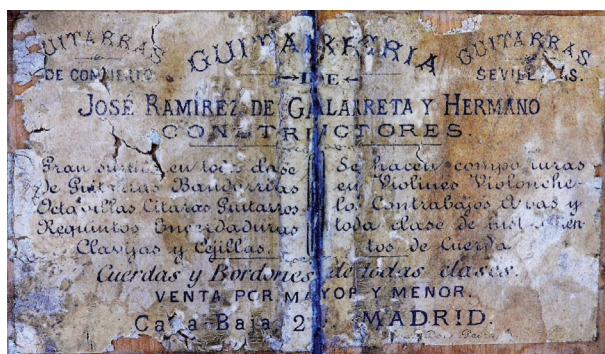 GUITARRAS
DE CONCIERTO
GUITARRERIA
GUITARRAS
SEVILL, AS.
→DE←
JOSÉ RAMIREZ DE GALARRETA Y HERMANO
CONSTRUCTORES.
Gran surtido en toda clase
de Guitarras Bandurrias
Octavillas Citaras Guitarros
Requintos Encordaduras
Clavijas y Cejillas.
Se hacen composturas
en Violines Violonche-
lo. Contrabajos Arpas y
toda clase de instrumen-
tos de Cuerda
Cuerdas y Bordones de todas clases.
VENTA POR MAYOR Y MENOR.
Cava Baja 2 MADRID.